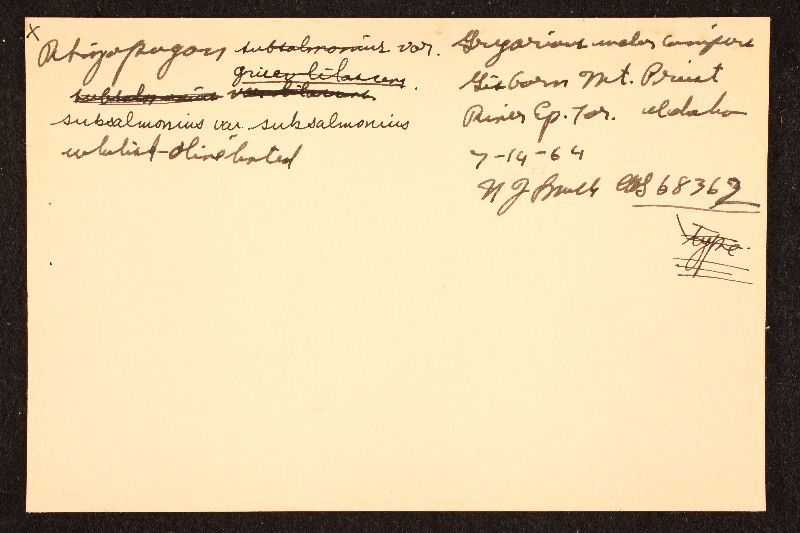 X
Rhizopogon subsalmonius var.
griseolilascens.
subsalmonius var. lilascens
subsalmonius var. subsalmonius
whitish-olive tinted
Gregarious under conifers
Gisborn Mt. Priest
River Ep. For. Idaho
7-14-64
AHS 68363
type.